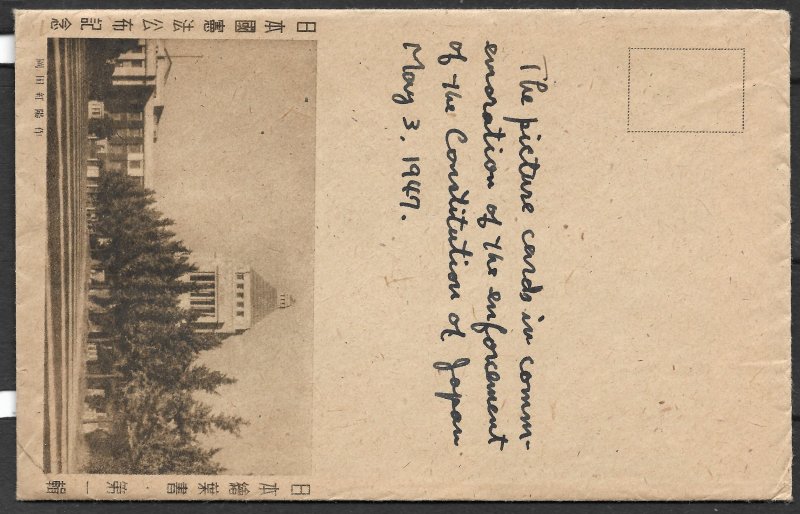 日本國憲法公布記念
岡田紅陽作
日本繪葉書・第一輯
The picture cards in comm-
emoration of the enforcement
of the Constitution of Japan.
May 3, 1947.